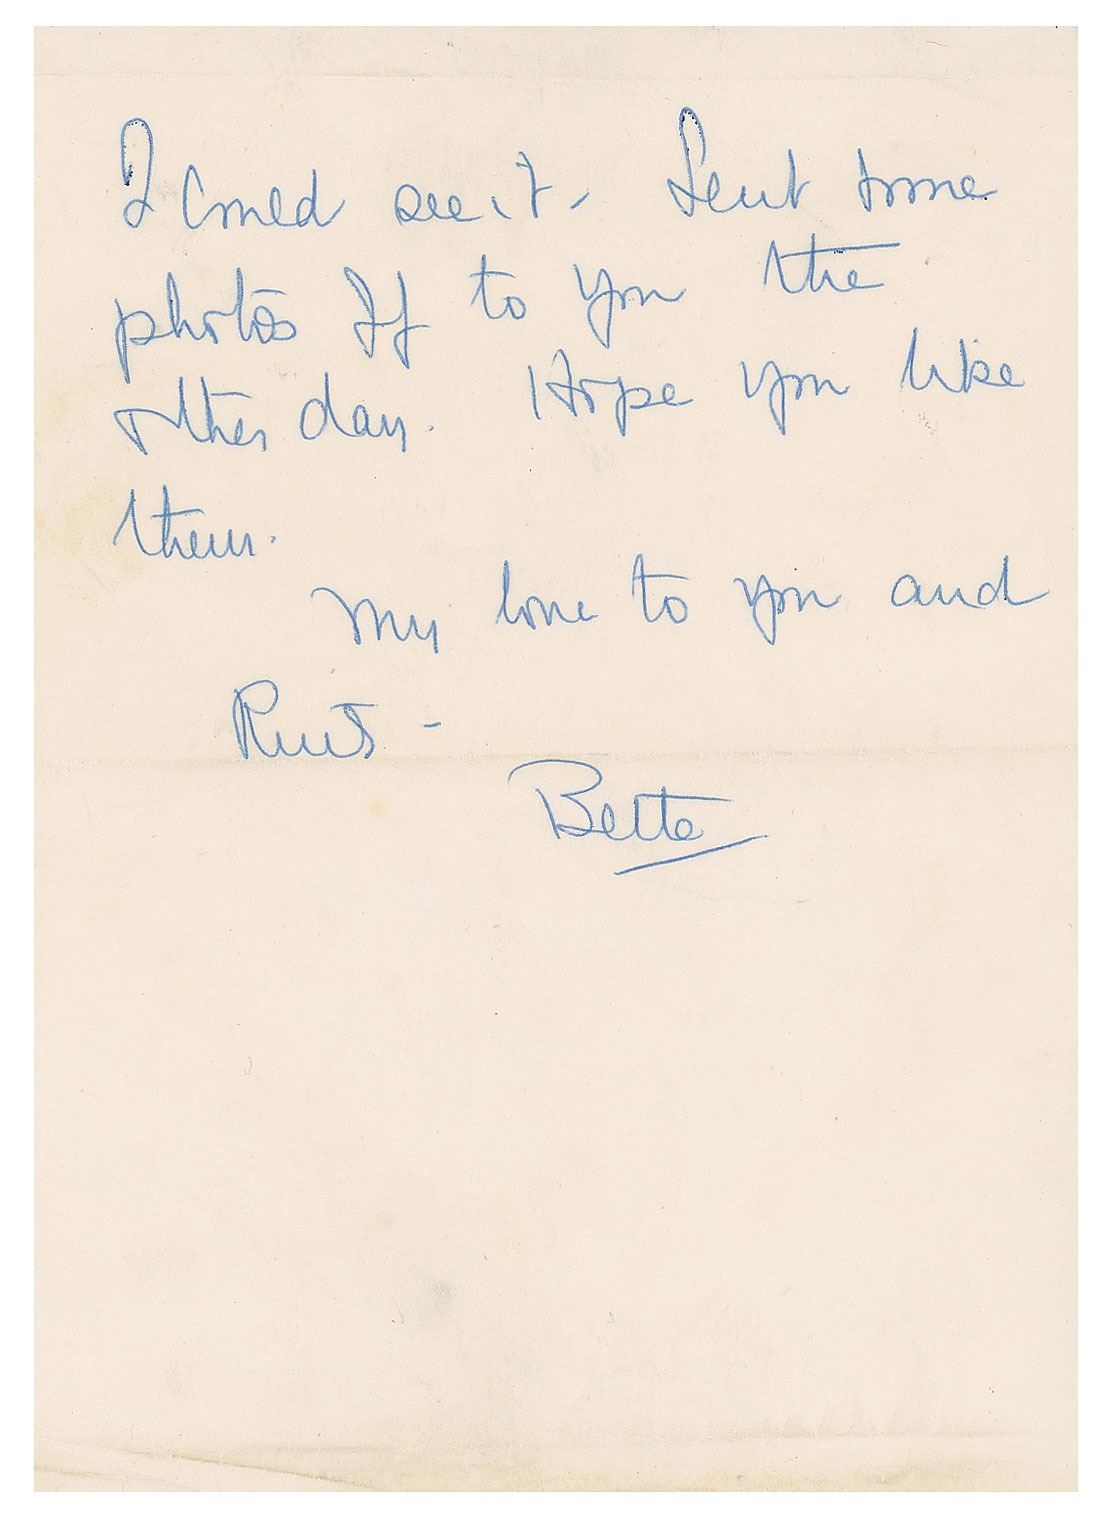 I could see it - Sent some
photos off to you the
other day. Hope you like
them.
My love to you and
-
Bette